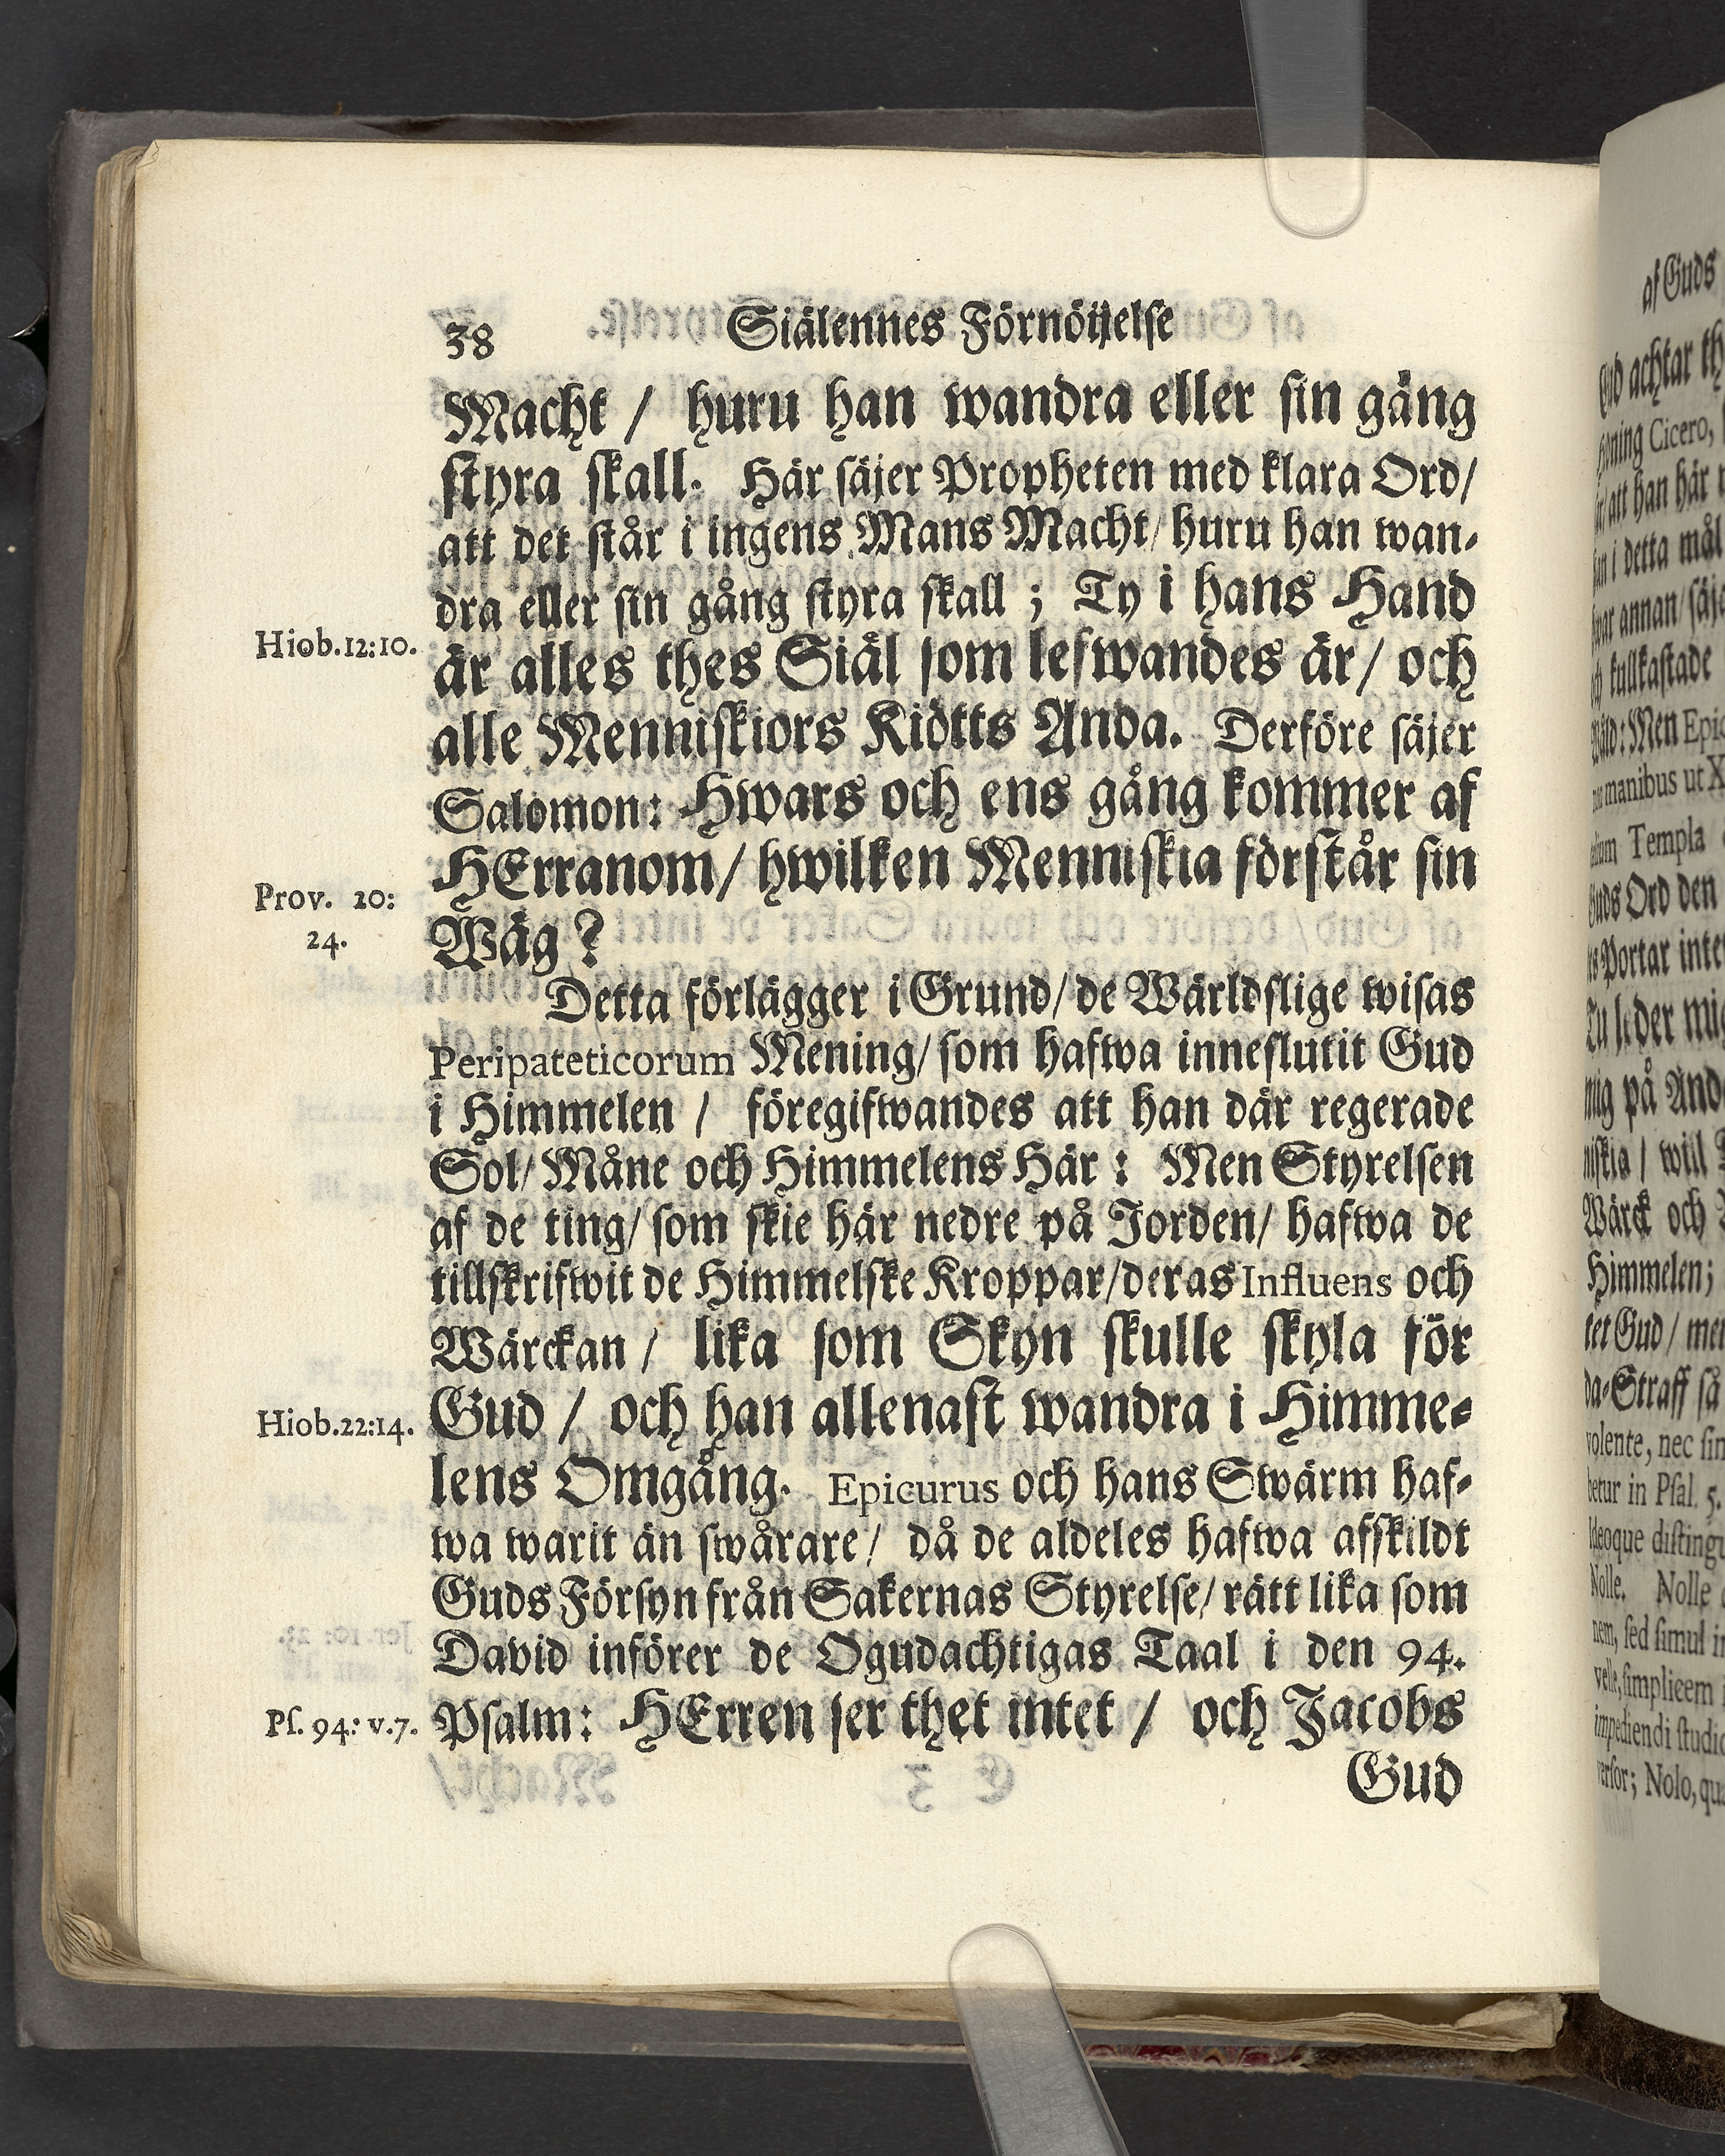 38 Siälennes Förnöijelse
Macht / huru han wandra eller sin gång
styra skall. Här säjer Propheten med klara Ord/
att det står i ingens Mans Macht/ huru han wan-
dra eller sin gång styra skall ; Ty i hans Hand
Hiob.12:10.
är alles thes Siäl som lefwandes är/ och
alle Menniskiors Kiötts Anda. Derföre säjer
Salomon: Hwars och ens gång kommer af
HErranom/ hwilken Menniskia förstår sin
Prov. 20:
24.
Wäg ?
Detta förlägger i Grund/ de Wärldslige wisas
Peripateticorum Mening/ som hafwa inneslutit Gud
i Himmelen / föregifwandes att han där regerade
Sol/ Måne och Himmelens Här : Men Styrelsen
af de ting/ som skie här nedre på Jorden/ hafwa de
tillskrifwit de Himmelske Kroppar/ deras Influens och
Wärckan / lika som Skyn skulle skyla för
Hiob.22:14.
Gud / och han allenast wandra i Himme-
lens Omgång. Epicurus och hans Swärm haf-
wa warit än swårare/ då de aldeles hafwa afskildt
Guds Försyn från Sakernas Styrelse/ rätt lika som
David införer de Ogudachtigas Taal i den 94.
Ps. 94: v.7.
Psalm: HErren ser thet intet / och Jacobs
Gud
af Guds
achtar
Cicero,
att han här
i detta mål
annan/
kullkastade
Men
manibus ut
Templa
Guds Ord den
Portar
mig på
will
Wärck och
Himmelen;
Gud/
da-Straff så
volente, nec
in Psal. 5.
Nolle. Nolle
sed simul
velle, simplicem
impediendi
Nolo,